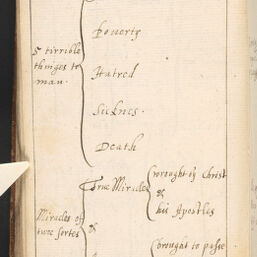 5 tirrible
thinges to
man.
Poverty
Hatred
Sicknes.
Death
Miracles of
twoe sortes
True Miracles
&
wrought by Christ
&
his Apostles
brought to passe